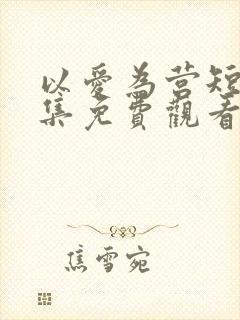 以愛為营短
集免費觀看
焦雪宛